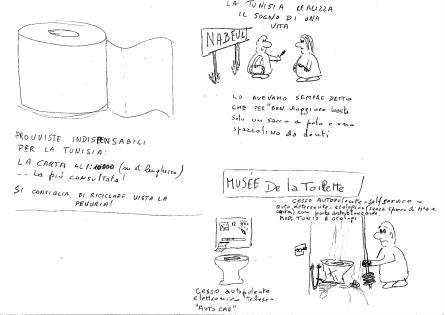 LA TUNISIA REALIZZA
IL SOGNO DI UNA
VITA
NABEUL
LO AVEVAMO SEMPRE DETTO
CHE PER "BEN viaggiare basta
solo un sacco a pelo e uno
spazzolino da denti
PROVVISTE INDISPENSABILI
PER LA TUNISIA:
LA CARTA AL 1: (in lunghezza)
-- La più consultata!
SI CONSIGLIA DI RICICLARE VISTA LA
PENURIA!
MUSÉE De la Toilette
CESSO AUTOPULENTE - SELFSERVICE -
auto detergente - ecologico (senza spreco di
carta) con porta autobloccante
CESSO autopulente
elettronico Tedesco
"AUTO CAG"